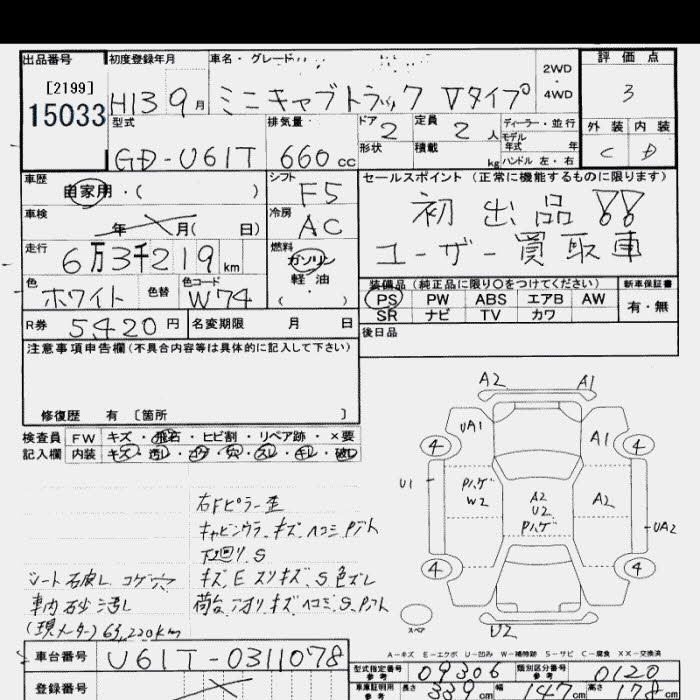 出品番号 初度登録年月 車名・グレード 評価点
[2199]
15033 H13 9月 ミニキャブトラック Vタイプ 2WD・4WD 3
型式 排気量 ドア 2 定員 2人 ディーラー・並行 外装 内装
モデル年式 年
GD-U61T 660cc 形状 積載 kg ハンドル 左・右 C D
車歴 シフト セールスポイント(正常に機能するものに限ります)
自家用・( ) F5
初出品!!
車検 年 月( 日) 冷房 AC
ユーザー買取車
走行 6万3千219km 燃料 ガソリン
軽油
( )
色 色替 色コード
ホワイト W74
装備品(純正品に限り○をつけてください) 新車保証書
PS PW ABS エアB AW 有・無
SR ナビ TV カワ
R券 5,420円 名変期限 月 日
後日品
注意事項申告欄(不具合内容等は具体的に記入して下さい)
修復歴 有 〔箇所 〕
検査員 FW キズ・飛石・ヒビ割・リペア跡・×要
記入欄 内装 キズ・汚レ・コゲ・穴・スレ・キレ・破レ
A2 A1
UA1 A1
4 4
U1 Pハゲ W2 A2 U2 Pハゲ A2 UA2
4 4
スペア U2
右Fピラー歪
キャビンウラ、キズ、ヘコミ、Pフト
下廻り、S
シート右破レ コゲ穴 キズ、E スリキズ、S 色ズレ
車内砂汚レ 荷台、アオリ キズ ヘコミ、S、Pフト
(現メーター) 63,220km
A-キズ E-エクボ U-凹み W-補修跡 S-サビ C-腐食 XX-交換済
車台番号 U61T-0311078
型式指定番号 09306 類別区分番号 0120
登録番号
車庫証明用参考 長さ 339cm 幅 147cm 高さ 178cm